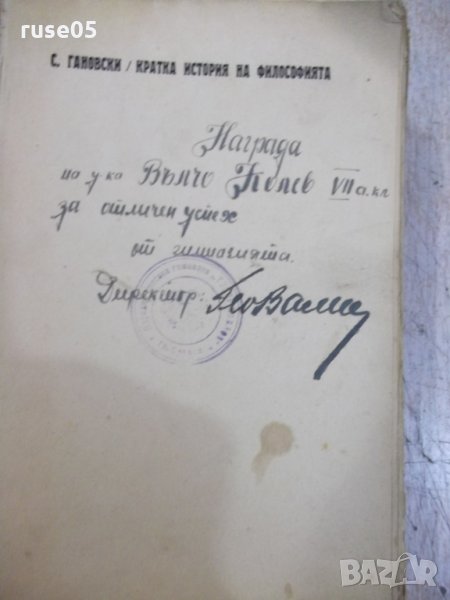 ruse05
С. ГАНОВСКИ / КРАТКА ИСТОРИЯ НА ФИЛОСОФИЯТА
Награда
на у-ка Вълчо VII а. кл
за отличен успех
от гимназията.
Директор:
BAZAR